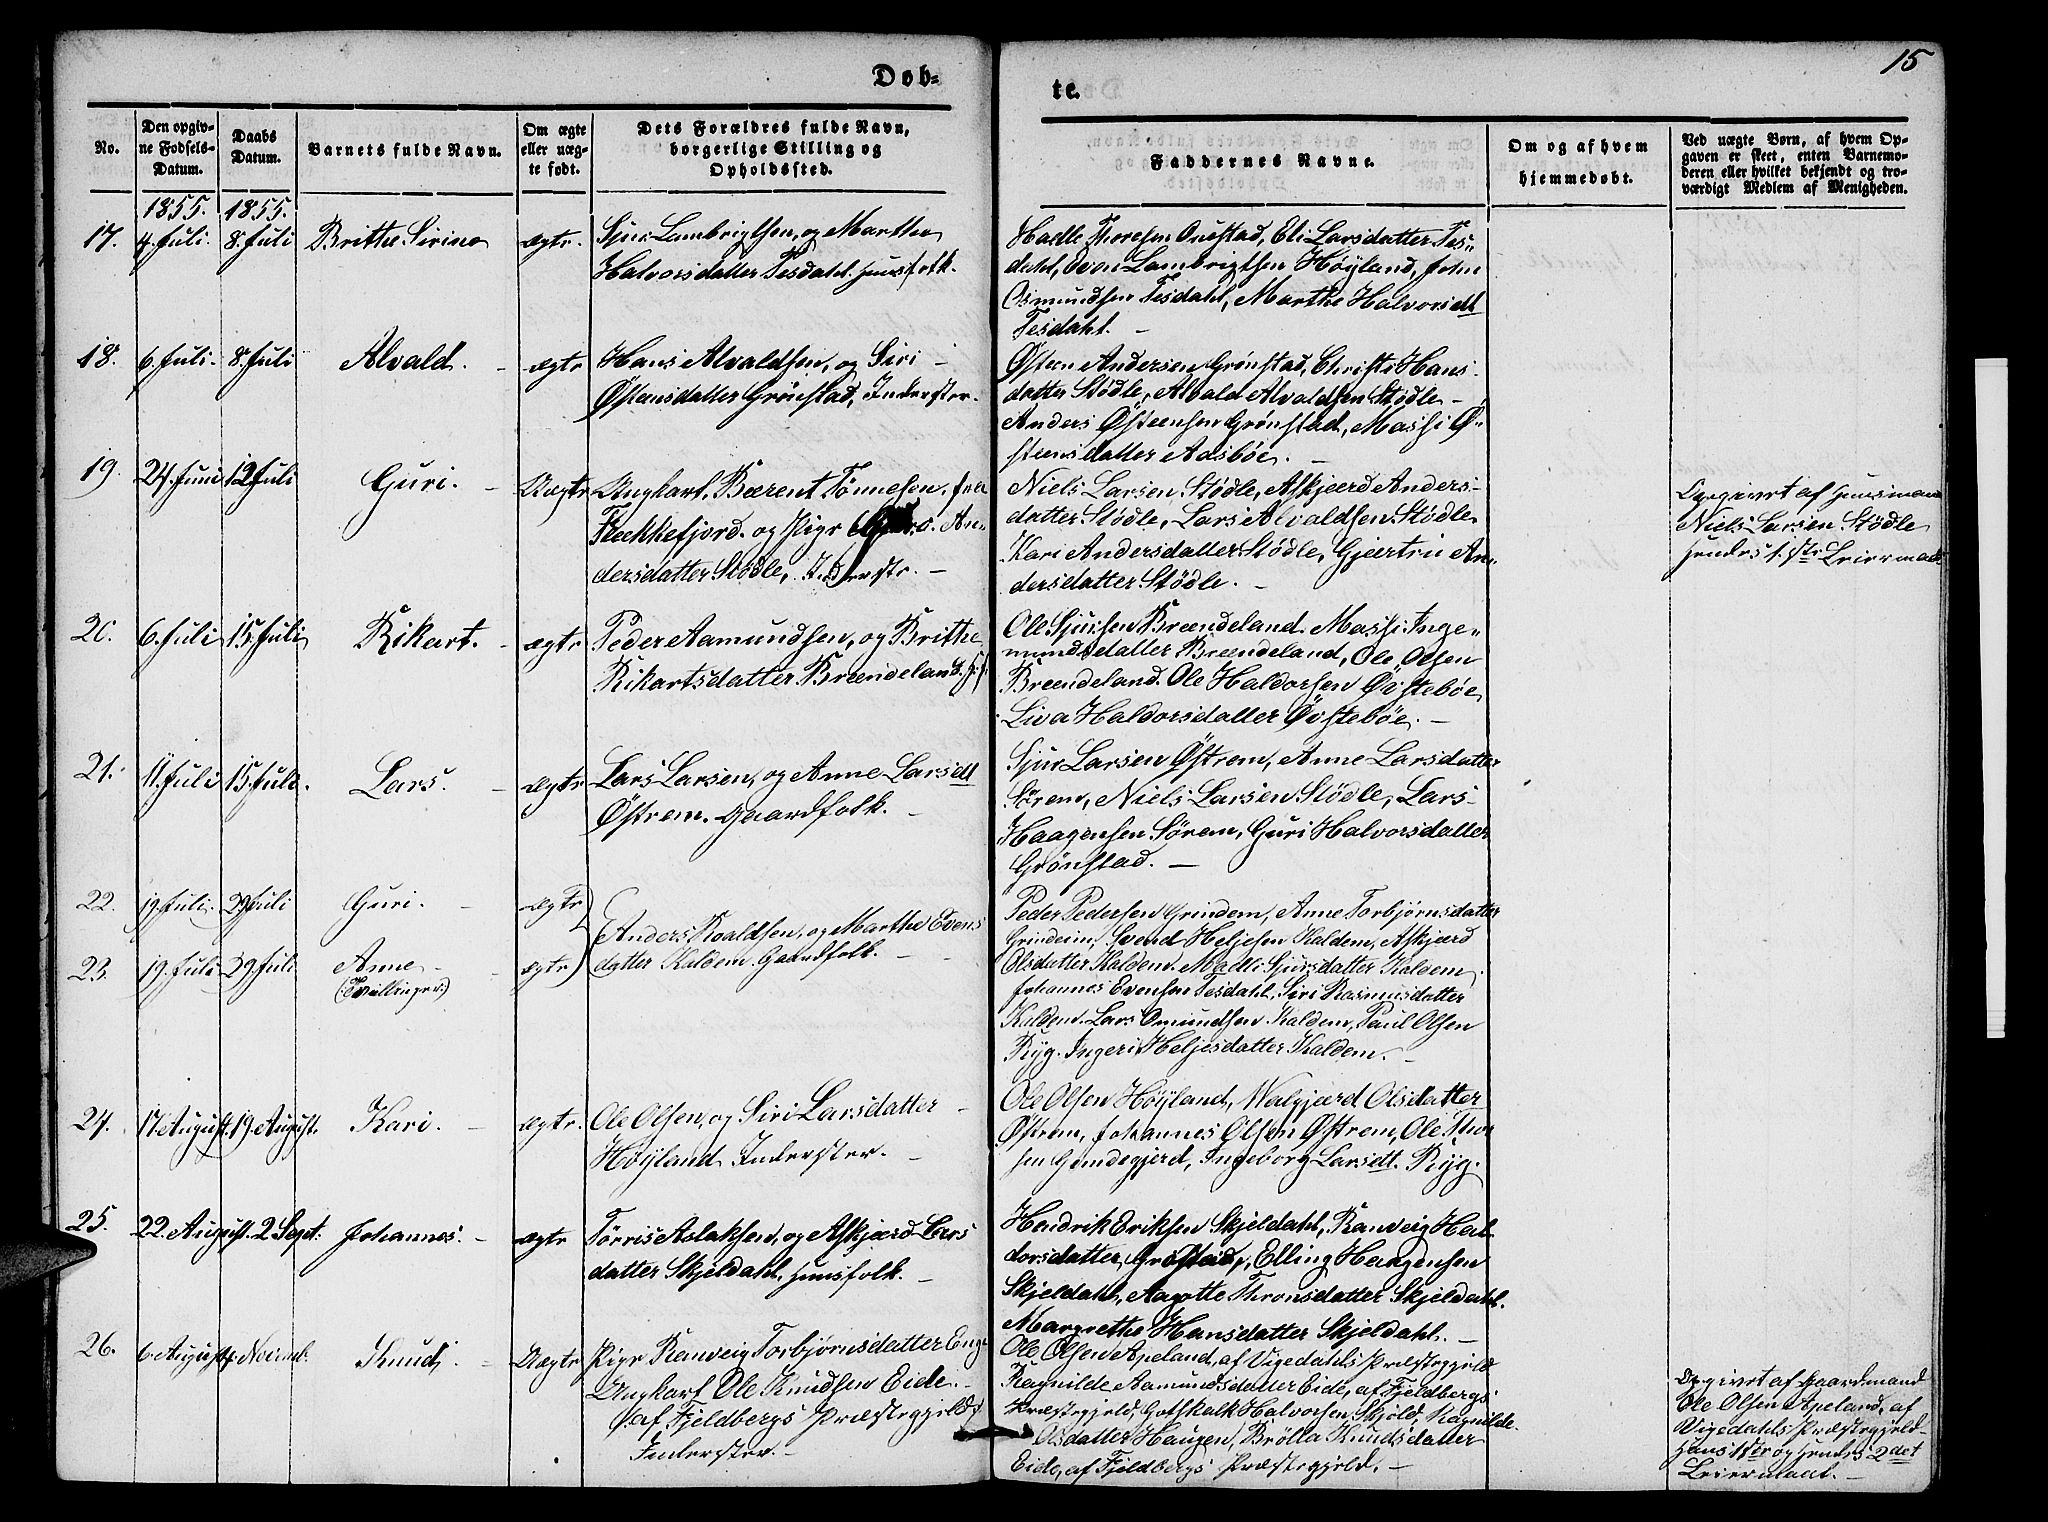 Døb-
te.
15
No.
Den opgiv-
ne Fødsels-
Datum.
Daabs
Datum.
Barnets fulde Navn.
Om ægte
eller uæg-
te født.
Dets Forældres fulde Navn,
borgerlige Stilling og
Opholdssted.
Faddernes Navne.
Om og af hvem
hjemmedøbt.
Ved uægte Børn, af hvem Op-
gaven er skeet, enten Barnemo-
deren eller hvilket bekjendt og tro-
værdigt Medlem af Menigheden.
1855. 1855.
17. 4. Juli. 8. Juli Brithe Sirine ægte.
Sjur Lambrigtsen, og Marthe
Halvorsdatter Tesdahl. Huusfolk.
Hadle Thoresen Onestad, Eli Larsdatter Tes-
dahl, Even Lambrigtsen Høyland, John
Osmundsen Tesdahl, Marthe Halvorsdt
Tesdahl. –
18. 6. Juli. 8. Juli Alvald. – ægte
Hans Alvaldsen, og Siri –
Østensdatter Grönstad, Inderster.
Østen Andersen Grönstad, Christi Hans-
datter Stödle, Alvald Alvaldsen Stödle –
Anders Østensen Grönstad, Massi Ø-
stensdatter Aasböe. –
19. 24. Juni 12 Juli Guri. – Uægte
Ungkarl. Bærent Tönnesen, fra
Flekkefjord. og Pige An-
dersdatter Stödle, Inderste. –
Niels Larsen Stödle, Askjærd Anders-
datter Stödle, Lars Alvaldsen Stödle
Kari Andersdatter Stödle, Gjærtru An-
dersdatter Stödle. –
Opgivet af Huusmand
Niels Larsen Stödle
Hendes 1.ste Leiermaal
20. 6. Juli 15. Juli Rikart. – ægte
Peder Aamundsen, og Brithe
Rikartsdatter Brændeland.
Ole Sjursen Brændeland. Massi Inge-
mundsdatter Brændeland, Ole Olsen
Brændeland. Ole Haldorsen Øvsteböe
Liva Haldorsdatter Øvsteböe. –
21. 11. Juli 15. Juli. Lars. – ægte
Lars Larsen, og Anne Larsdt
Østrem. Gaardfolk. –
Sjur Larsen Østrem, Anne Larsdatter
Sörem, Niels Larsen Stödle, Lars
Haagensen Sörem, Guri Halvorsdatter
Grönstad. –
22. 19. Juli. 29 Juli Guri. – ægte
23. 19. Juli 29 Juli Anne – ægte
(:Tvillinger:)
Anders Roaldsen, og Marthe Evens
datter Kaldem. Gaardfolk. –
Peder Pedersen Grindem, Anne Torbjørnsdatter
Grindeim, Svend Heljesen Kaldem, Askjærd
Olsdatter Kaldem. Madli Sjursdatter Kaldem,
Johannes Evensen Tesdahl, Siri Rasmusdatter
Kaldem. Lars Omundsen Kaldem, Paul Olsen
Ryg. Ingeri Heljesdatter Kaldem. –
24. 17 August. 19. August. Kari. – ægte.
Ole Olsen, og Siri Larsdatter –
Höyland Inderster. –
Ole Olsen Höyland, Walgjærd Olsdatter
Østrem, Johannes Olsen Østrem, Ole Thor
sen Gundegjerd, Ingeborg Larsdt. Ryg.
25. 22. August. 2 Sept: Johannes. – ægte
Törris Aslaksen, og Askjærd Lars
datter Skjeldahl, Huusfolk. –
Hendrik Eriksen Skjeldahl, Ranveig Hal
dorsdatter, Elling Haagensen
Skjeldahl, Aagotte Thronsdatter Skjeldahl.
Margrethe Hansdatter Skjeldahl. –
26. 6. August 4. Novemb. Knud. – Uægte
Pige Ranveig Torbjørnsdatter Enge
Ungkarl Ole Knudsen Eide. –
af Fjeldbergs Præstegjeld
Inderster. –
Ole Olsen Apeland, af Vigedahls Præstegjeld
Ragnilde Aamundsdatter Eide, af Fjeldbergs
Præstegjeld, Gotskalk Halvorsen Skjold, Ragnilde.
Olsdatter Haugen, Brölla Knudsdatter
Eide, af Fjeldbergs Præstegjeld. –
Opgivet af Gaardmand
Ole Olsen Apeland, af
Vigedahls Præstegjeld –
Hans 1ste og Hendes 2det
Leiermaal. –